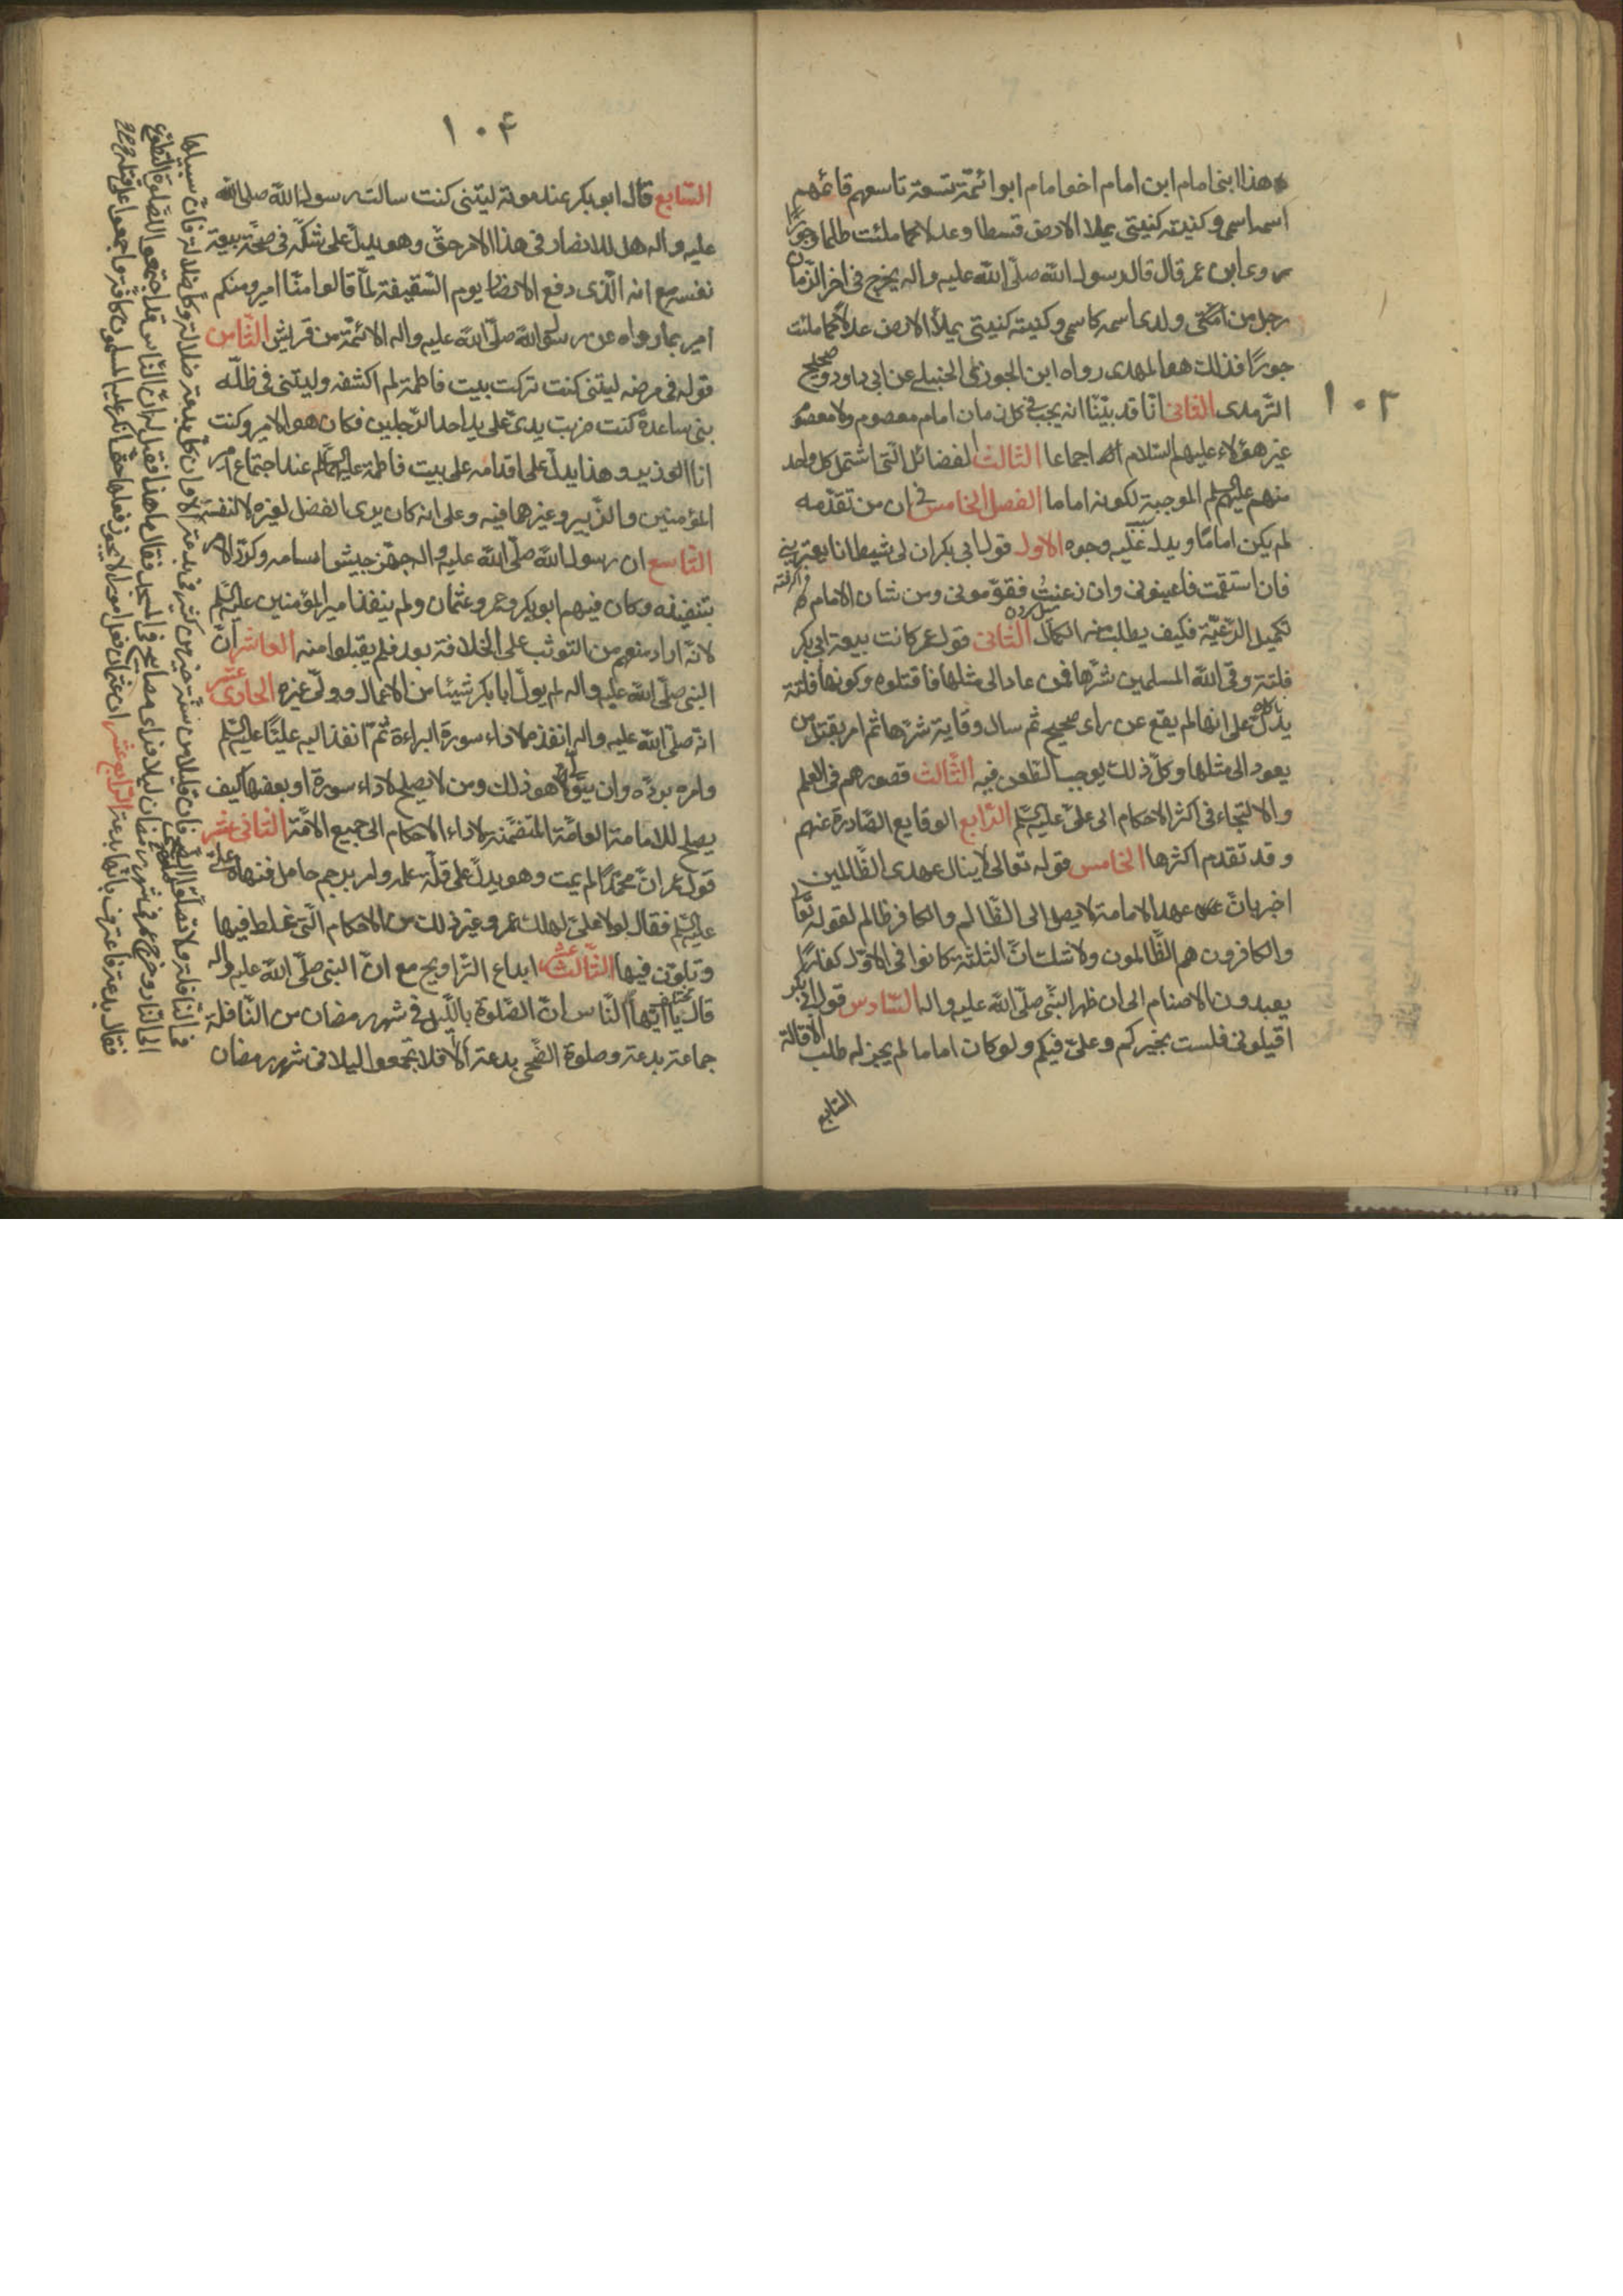 ١٠٣
هذا ابنى امام ابن امام اخو امام ابو ائمّة تسعة تاسعهم قائمهم
اسمه اسمى وكنيته كنيتى يملا الارض قسطا وعدلا كما ملئت ظلما وجورا
روى ابن عمر قال قال رسول الله صلّى الله عليه واله يخرج فى اخر الزّمان
رجل من امّتى ولدى اسمه كاسمى وكنيته كنيتى يملأ الارض عدلاً كما ملئت
جورًا فذلك هو المهدى رواه ابن الجوزى الحنبلى عن ابى داود وصحيح
الترمدى الثانى انّا قد بيّنّا انه يجب فى كل زمان امام معصوم ولا معصوم
غير هؤلاء عليهم السّلام اجماعا الثالث الفضائل الّتى اشتمل كل واحد
منهم عليهم السلم الموجبة لكونه اماما الفصل الخامس فى ان من تقدّمه
لم يكن امامًا ويدل عليه وجوه الاول قول ابى بكر ان لى شيطانا يعترينى
فان استقمت فاعينونى وان زغت فقوّمونى ومن شان الامام
تكميل الرّعيّة فكيف يطلب منهم الكمال الثانى قول عمر كانت بيعة ابى بكر
فلتة وقى الله المسلمين شرّها فمن عاد الى مثلها فاقتلوه وكونها فلتة
يدلّ على انها لم يقع عن راى صحيح ثم سال وقاية شرّها ثم امر بقتل من
يعود الى مثلها وكلّ ذلك يوجب الطّعن فيه الثّالث قصورهم فى العلم
والالتجاء فى اكثر الاحكام الى علىّ عليه السّلم الرّابع الوقايع الصّادرة عنهم
وقد تقدم اكثرها الخامس قوله تعالى لا ينال عهدى الظّالمين
اخبر بانّ عهد الامامة لا يصل الى الظّالم والكافر ظالم لقوله تعالى
والكافرون هم الظّالمون ولا شك انّ الثلثة كانوا فى الاوّل كفارًا
يعبدون الاصنام الى ان ظهر النّبى صلّى الله عليه واله السّادس قول ابى بكر
اقيلونى فلست بخيركم وعلىّ فيكم ولو كان اماما لم يجز له طلب الاقالة
السّابع
١٠٤
السّابع قال ابو بكر عند موته ليتنى كنت سالت رسول الله صلى الله
عليه واله هل للانصار فى هذا الامر حقّ وهو يدلّ على شكّه فى صحّة بيعة
نفسه مع انه الّذى دفع الانصار يوم السّقيفة لمّا قالوا منّا امير ومنكم
امير بما رواه عن رسول الله صلّى الله عليه واله الائمّة من قريش الثّامن
قوله فى مرضه ليتنى كنت تركت بيت فاطمة لم اكشفه وليتنى فى ظلّه
بنى ساعدة كنت ضربت يدى على يد احد الرّجلين فكان هو الامير وكنت
انا الوزير وهذا يدلّ على اقدامه على بيت فاطمة عليها السلم عند اجتماع امير
المؤمنين والزّبير وغيرها فيه وعلى انه كان يرى الفضل لغيره لا لنفسه
التّاسع ان رسول الله صلّى الله عليه واله جهّز جيش اسامه وكرّر الامر
بتنفيذه وكان فيهم ابو بكر وعمر وعثمان ولم ينفذ امير المؤمنين عليه السّلم
لانّه اراد منعهم من التوثب على الخلافة بعد فلم يقبلوا منه العاشر انّ
النبى صلّى الله عليه واله لم يولّ ابا بكر شيئا من الاعمال وولّى غيره الحادى عشر
انّه صلّى الله عليه واله انفذه لاداء سورة البراءة ثمّ انفذ اليه عليًّا عليه السّلم
وامره بردّه وان يتولّى هو ذلك ومن لا يصلح لاداء سورة او بعضها كيف
يصلح للامامة العامّة المتضمّنة لاداء الاحكام الى جميع الامّة الثانى عشر
قول عمر انّ محمّدًا لم يمت وهو يدلّ على قلّة علمه وامر برجم حامل فنهاه علىّ
عليه السلم فقال لولا علىّ لهلك عمر وغير ذلك من الاحكام الّتى غلط فيها
وتلوّن فيها الثّالث عشر ابداع التّراويح مع انّ النبى صلّى الله عليه واله
قال يا ايّها النّاس انّ الصّلوة باللّيل فى شهر رمضان من النّافلة
جماعة بدعة وصلوة الضّحى بدعة الا فلا تجمعوا ليلا فى شهر رمضان
فى النّافلة ولا تصلّوا صلوة الضّحى فان قليلا من سنّة خير من كثير فى بدعة الا وان كلّ بدعة ضلالة وكلّ ضلالة فانّ سبيلها
الى النّار وخرج عمر فى شهر رمضان ليلا فراى مصابيح فى المسجد فقال ما هذا فقيل له انّ النّاس قد اجتمعوا لصّلوة التّطوّع
فقال بدعة فاعترف بانّها بدعة الرّابع عشر ان عثمان فعل امورا لا يجوز فعلها حتى انكر عليه المسلمون كافّة واجمعوا على قتله